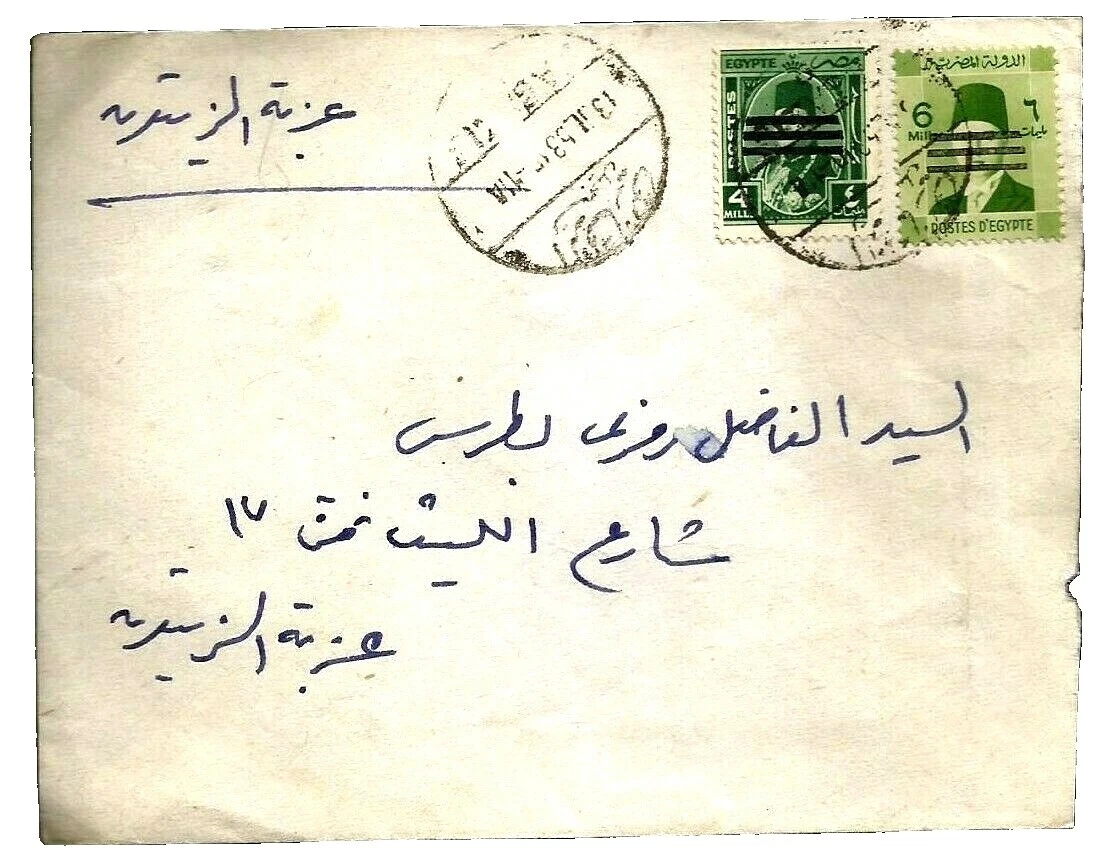 عزبة الزيتون
13.JL.53. -11A
EGYPTE مصر
POSTES
4 ٤
MILLS مليمات
الدولة المصرية
6 ٦
Mill مليمات
POSTES D'EGYPTE
السيد الفاضل رمزى بطرس
شارع الليثى نمرة ١٢
عزبة الزيتون